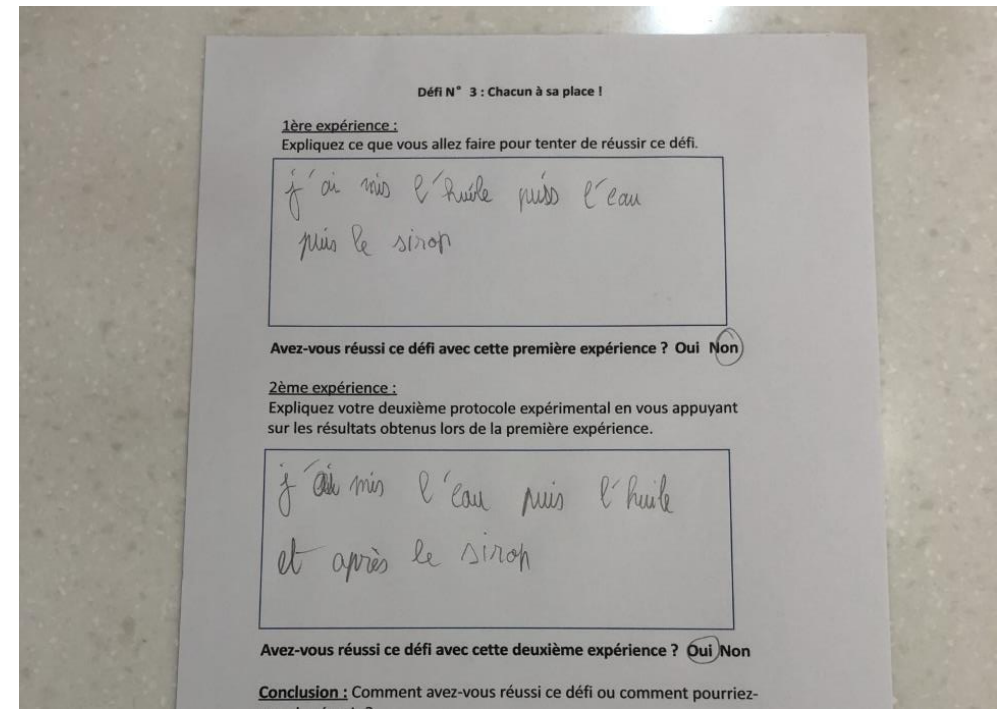 Défi N° 3 : Chacun à sa place !
1ère expérience :
Expliquez ce que vous allez faire pour tenter de réussir ce défi.
j'ai mis l'huile puis l'eau
puis le sirop
Avez-vous réussi ce défi avec cette première expérience ? Oui Non
2ème expérience :
Expliquez votre deuxième protocole expérimental en vous appuyant
sur les résultats obtenus lors de la première expérience.
j'ai mis l'eau puis l'huile
et après le sirop
Avez-vous réussi ce défi avec cette deuxième expérience ? Oui Non
Conclusion : Comment avez-vous réussi ce défi ou comment pourriez-